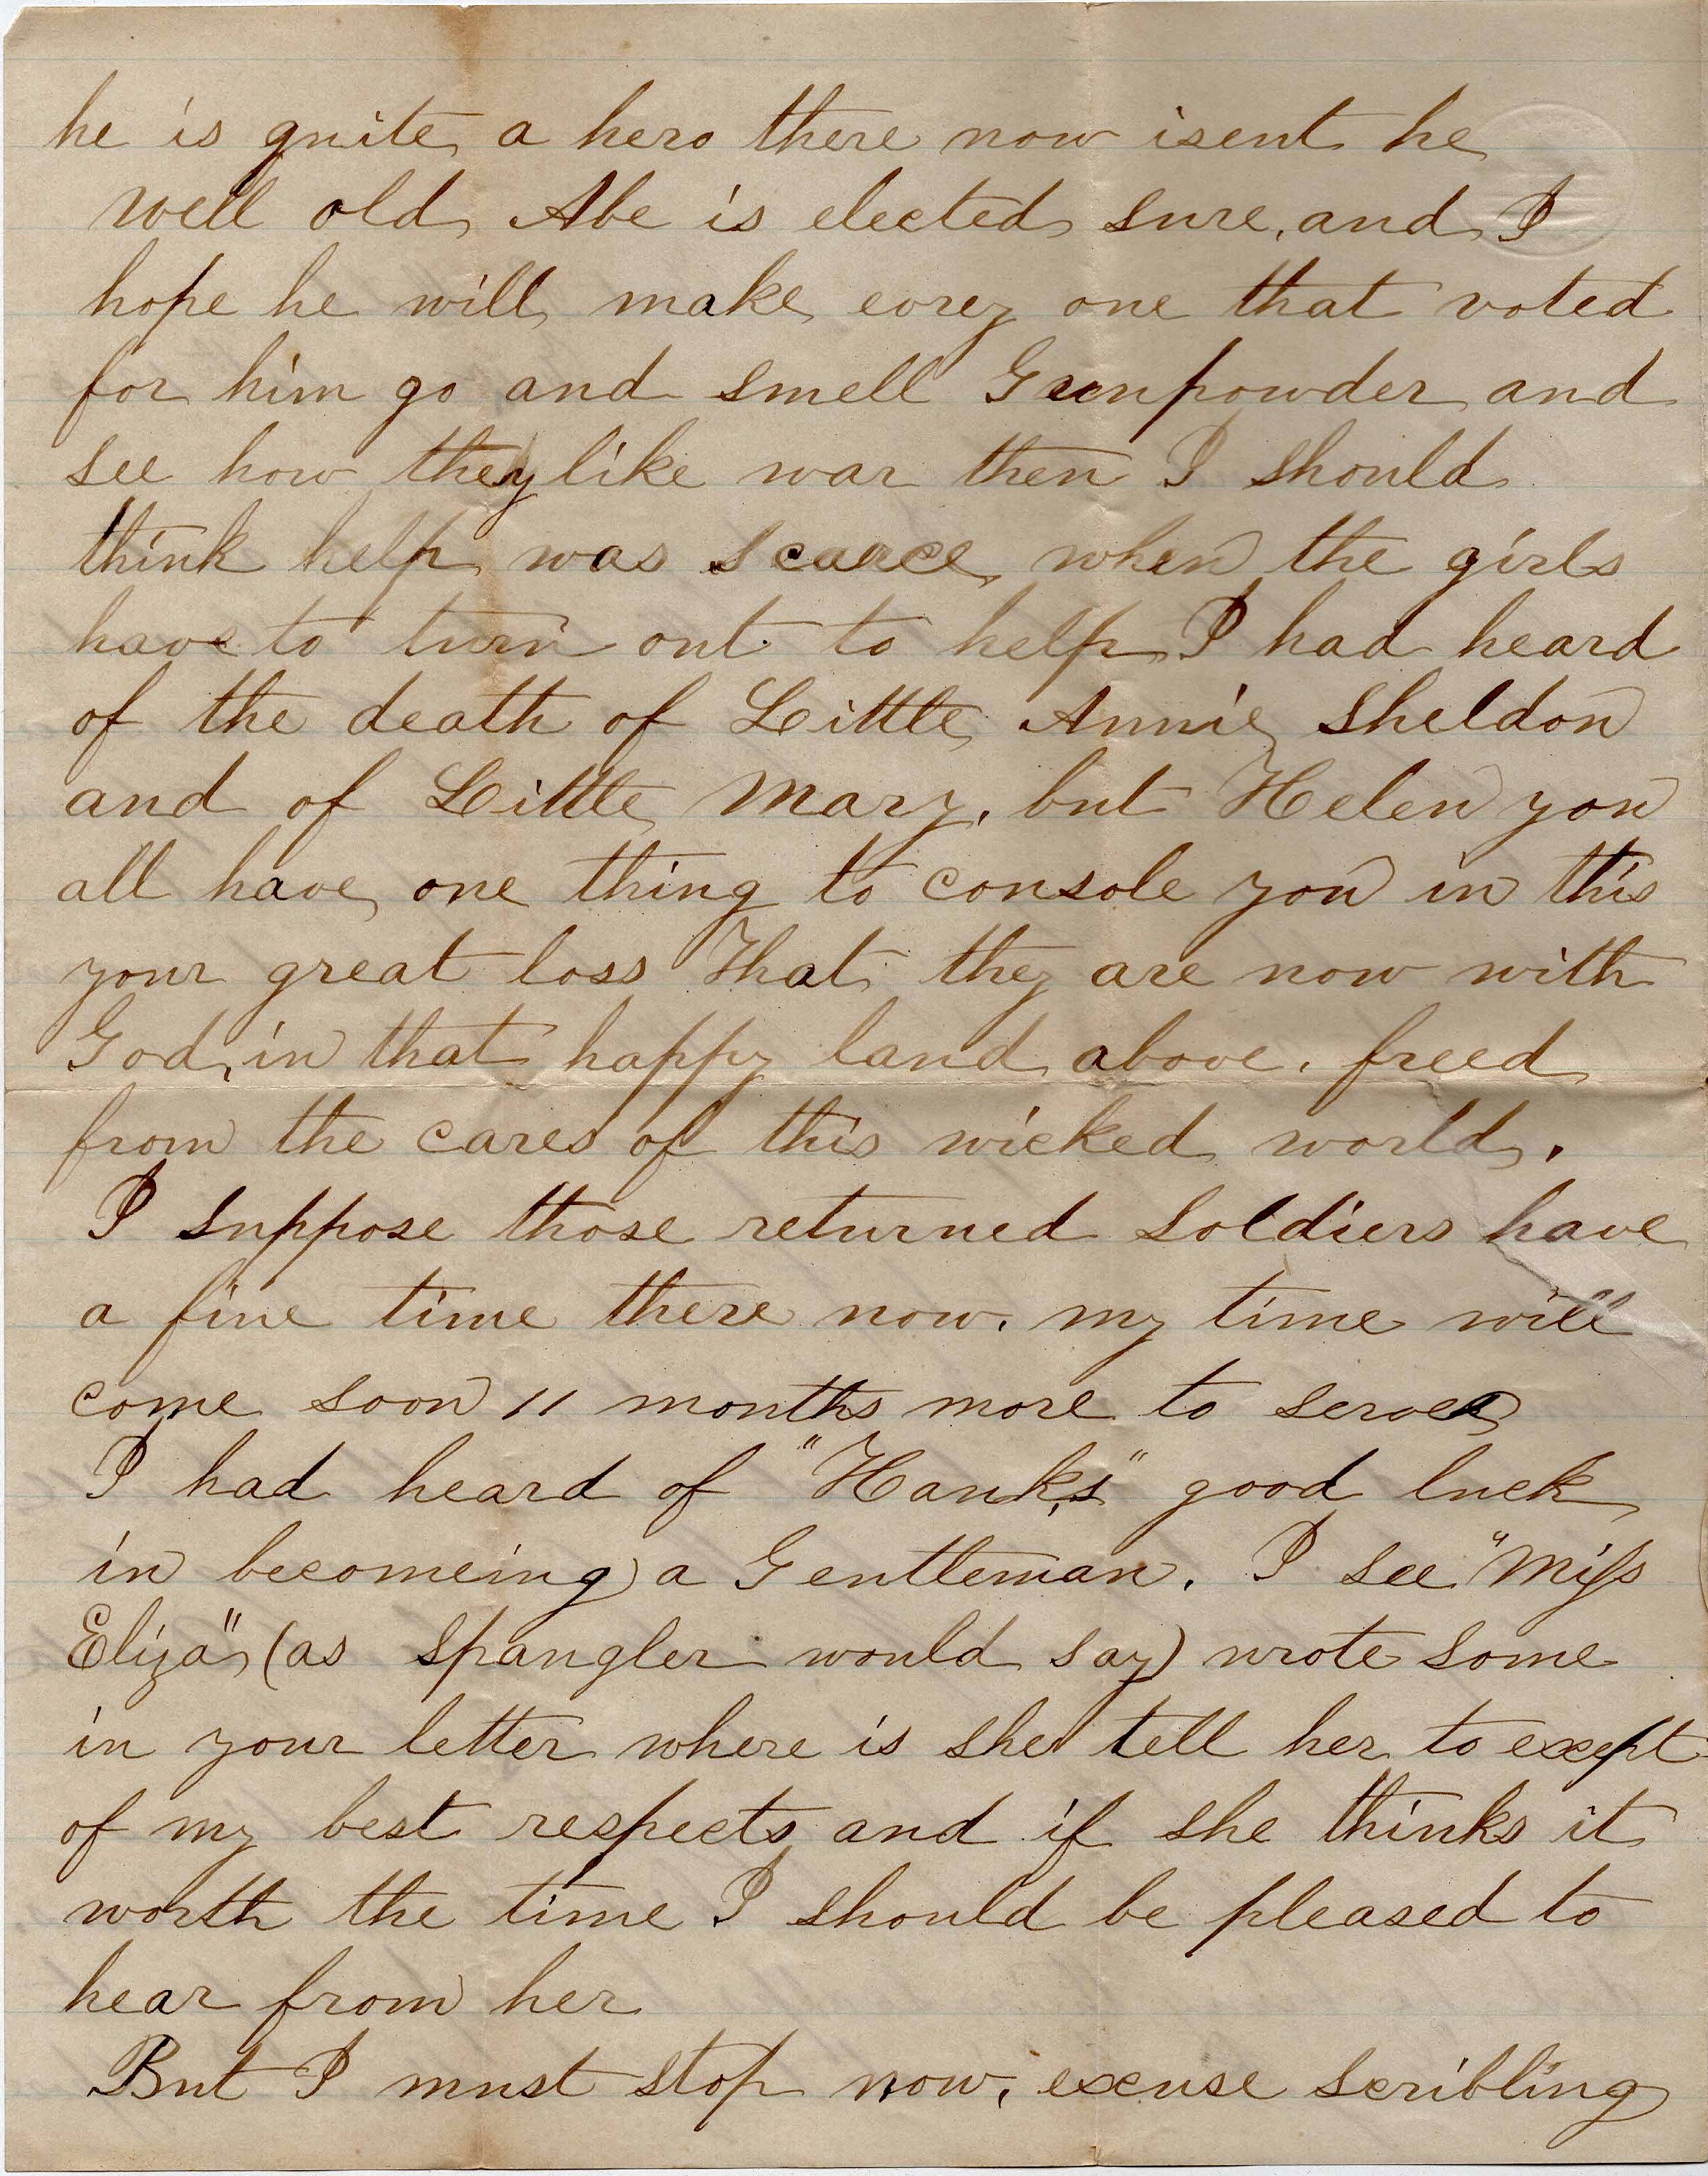 he is quite a hero there now isent he
well old Abe is elected sure, and I
hope he will make evrey one that voted
for him go and smell Gunpowder and
see how they like war then I should
think help was scarce when the girls
have to turn out to help I had heard
of the death of Little Annie Sheldon
and of Little Mary, but Helen you
all have one thing to console you in this
your great loss That they are now with
God, in that happy land above, freed
from the cares of this wicked world.
I suppose those returned Soldiers have
a fine time there now. my time will
come soon 11 months more to serve
I had heard of "Hank's" good luck
in becomeing a Gentleman. I see "Miss
Eliza" (as Spangler would say) wrote some
in your letter where is she tell her to exept
of my best respects and if she thinks it
worth the time I should be pleased to
hear from her
But I must stop now, excuse scribling